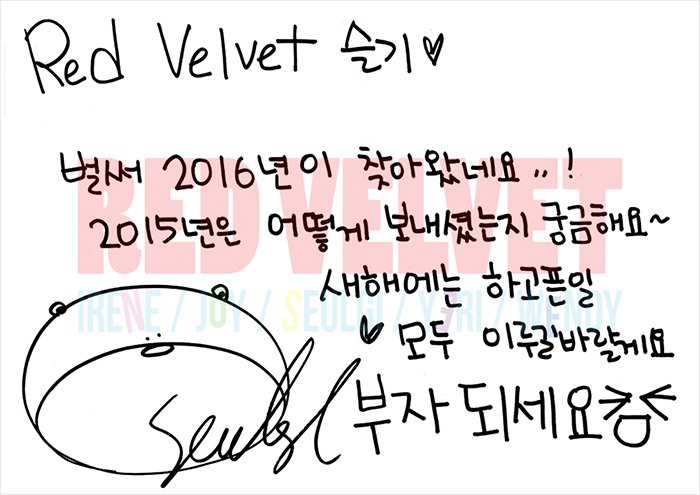 Red Velvet 슬기♡
벌써 2016년이 찾아왔네요..!
RED VELVET
2015년은 어떻게 보내셨는지 궁금해요~
새해에는 하고픈일
IRENE / JOY / SEULGI / YERI / WENDY
♥ 모두 이루길바랄게요
부자 되세요
Seulgi